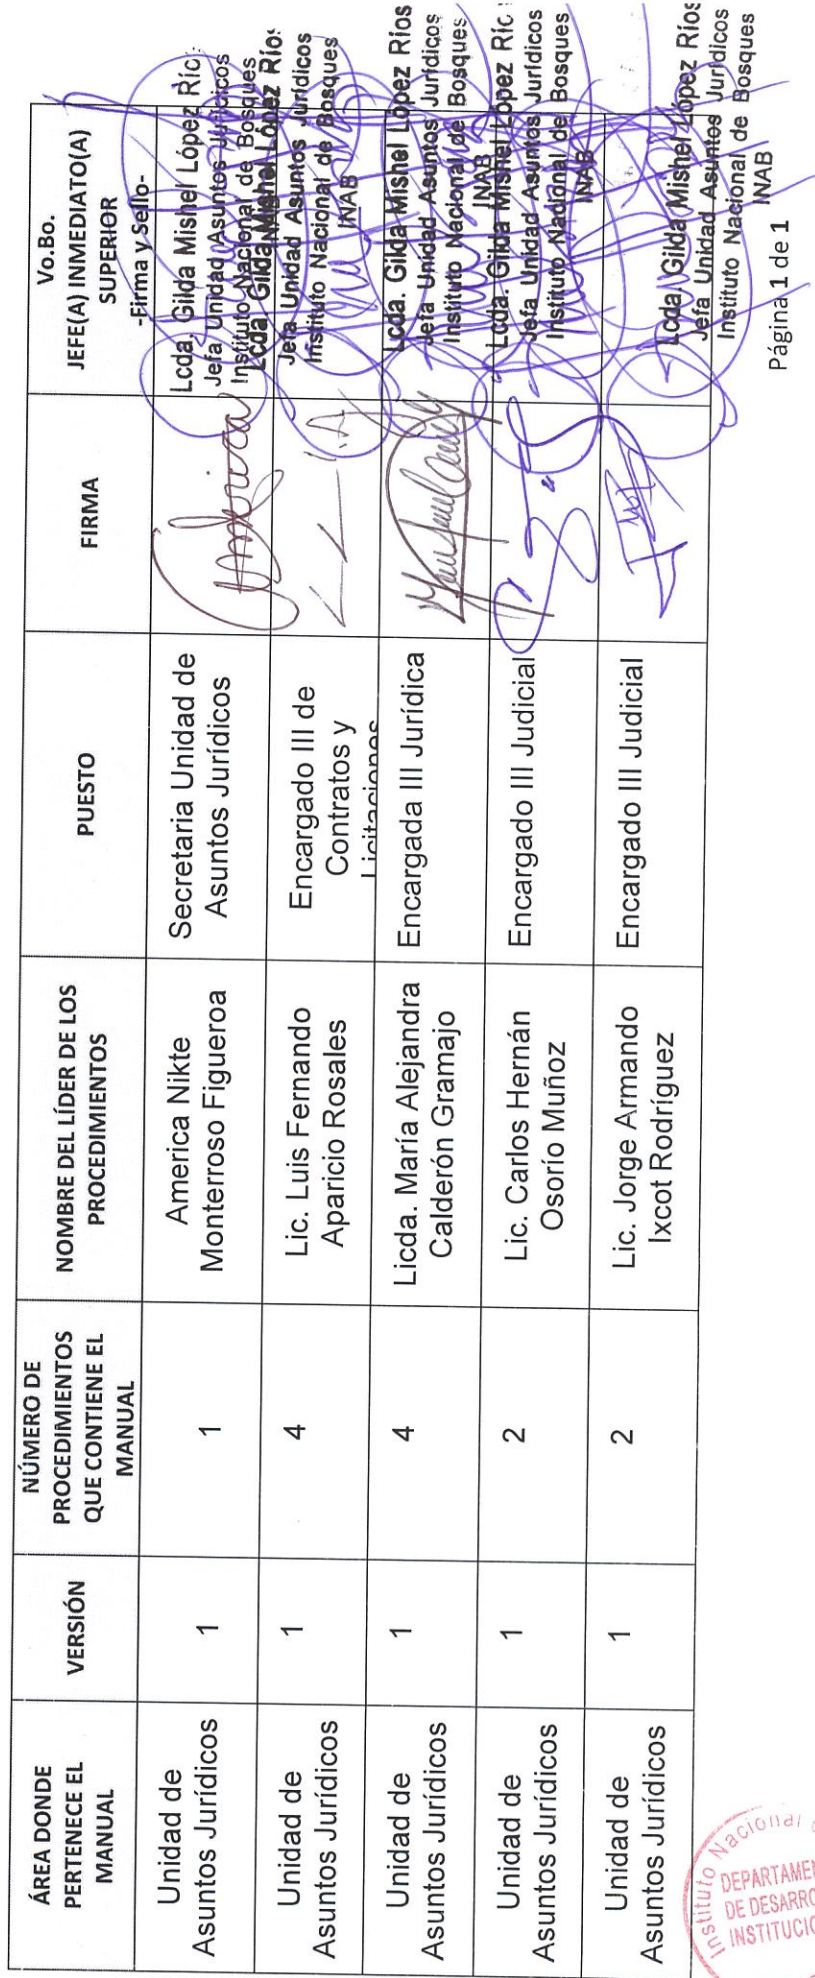 ÁREA DONDE
PERTENECE EL
MANUAL
VERSIÓN
NÚMERO DE
PROCEDIMIENTOS
QUE CONTIENE EL
MANUAL
NOMBRE DEL LÍDER DE LOS
PROCEDIMIENTOS
PUESTO
FIRMA
Vo.Bo.
JEFE(A) INMEDIATO(A)
SUPERIOR
-Firma y Sello-
Unidad de
Asuntos Jurídicos
1
1
America Nikte
Monterroso Figueroa
Secretaria Unidad de
Asuntos Jurídicos
America
Lcda. Gilda Mishel López Ríos
Jefa Unidad Asuntos Jurídicos
Instituto Nacional de Bosques
Unidad de
Asuntos Jurídicos
1
4
Lic. Luis Fernando
Aparicio Rosales
Encargado III de
Contratos y
Licitaciones
Lcda. Gilda Mishel López Ríos
Jefa Unidad Asuntos Jurídicos
Instituto Nacional de Bosques
INAB
Unidad de
Asuntos Jurídicos
1
4
Licda. María Alejandra
Calderón Gramajo
Encargada III Jurídica
Lcda. Gilda Mishel López Ríos
Jefa Unidad Asuntos Jurídicos
Instituto Nacional de Bosques
INAB
Unidad de
Asuntos Jurídicos
1
2
Lic. Carlos Hernán
Osorío Muñoz
Encargado III Judicial
Lcda. Gilda Mishel López Ríos
Jefa Unidad Asuntos Jurídicos
Instituto Nacional de Bosques
INAB
Unidad de
Asuntos Jurídicos
1
2
Lic. Jorge Armando
Ixcot Rodríguez
Encargado III Judicial
Lcda. Gilda Mishel López Ríos
Jefa Unidad Asuntos Jurídicos
Instituto Nacional de Bosques
INAB
Página 1 de 1
Instituto Nacional
DEPARTAMEN
DE DESARRO
INSTITUCIO